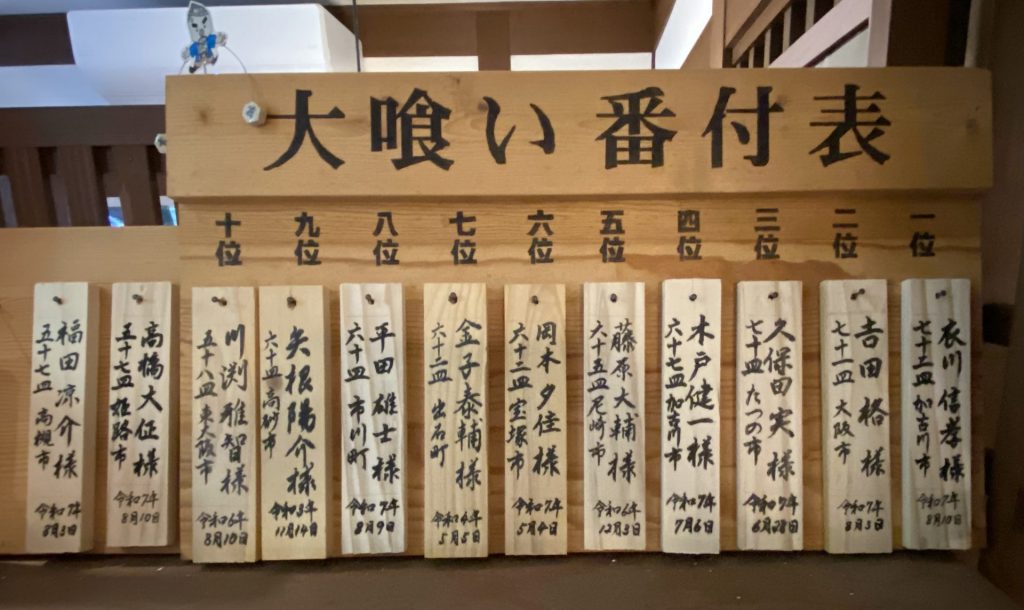 大喰い番付表
一位
衣川信孝様
七十二皿 加古川市
令和7年
8月10日
二位
吉田格様
七十一皿 大阪市
令和7年
8月3日
三位
久保田実様
七十皿 たつの市
令和7年
6月28日
四位
木戸健一様
六十七皿 加古川市
令和7年
7月6日
五位
藤原大輔様
六十五皿 尼崎市
令和6年
12月3日
六位
岡本夕佳様
六十二皿 宝塚市
令和7年
5月4日
七位
金子泰輔様
六十二皿 出石町
令和4年
5月5日
八位
平田雄士様
六十皿 市川町
令和7年
8月9日
九位
矢根陽介様
六十皿 高砂市
令和3年
11月14日
十位
川渕雅智様
五十八皿 東大阪市
令和6年
8月10日
高橋大征様
五十七皿 姫路市
令和7年
8月10日
福田凉介様
五十七皿 高槻市
令和7年
8月3日